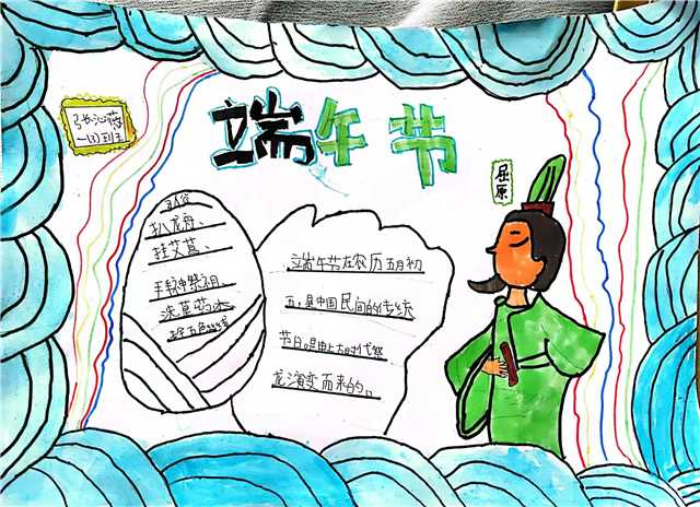 端午节
一(3)班
屈原
扒龙舟、
挂艾草、
祭祖、
洗草药水
五色丝线
端午节在农历五月初
五,是中国民间的传统
节日。是由上古时代祭
龙演变而来的。